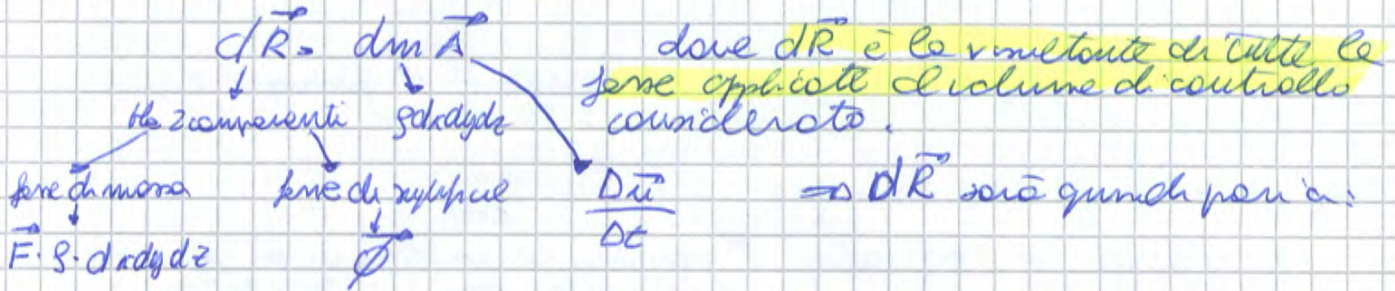 dR = dm A dove dR è la risultante di tutte le
forze applicate al volume di controllo
considerato.
ha 2 componenti ρdxdydz
forze di massa forze di superficie Du/Dt ⇒ dR sarà quindi pari a:
F·ρ·dxdydz Φ